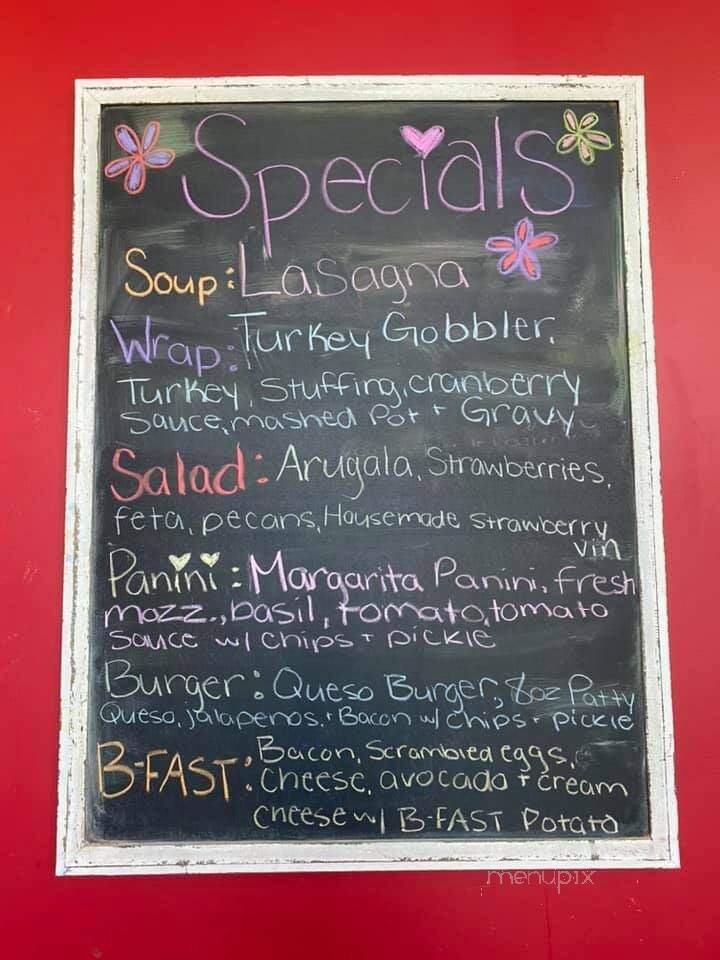 Specials
Soup: Lasagna
Wrap: Turkey Gobbler,
Turkey, Stuffing, cranberry
Sauce, mashed Pot + Gravy
Salad: Arugala, Strawberries,
feta, pecans, Housemade Strawberry
vin
Panini: Margarita Panini, fresh
mozz., basil, tomato, tomato
Sauce w/ chips + pickle
Burger: Queso Burger, 8oz Patty
Queso, jalapenos, + Bacon w/ chips + pickle
B-FAST: Bacon, Scrambled eggs,
Cheese, avocado + cream
cheese w/ B-FAST Potato
menupix